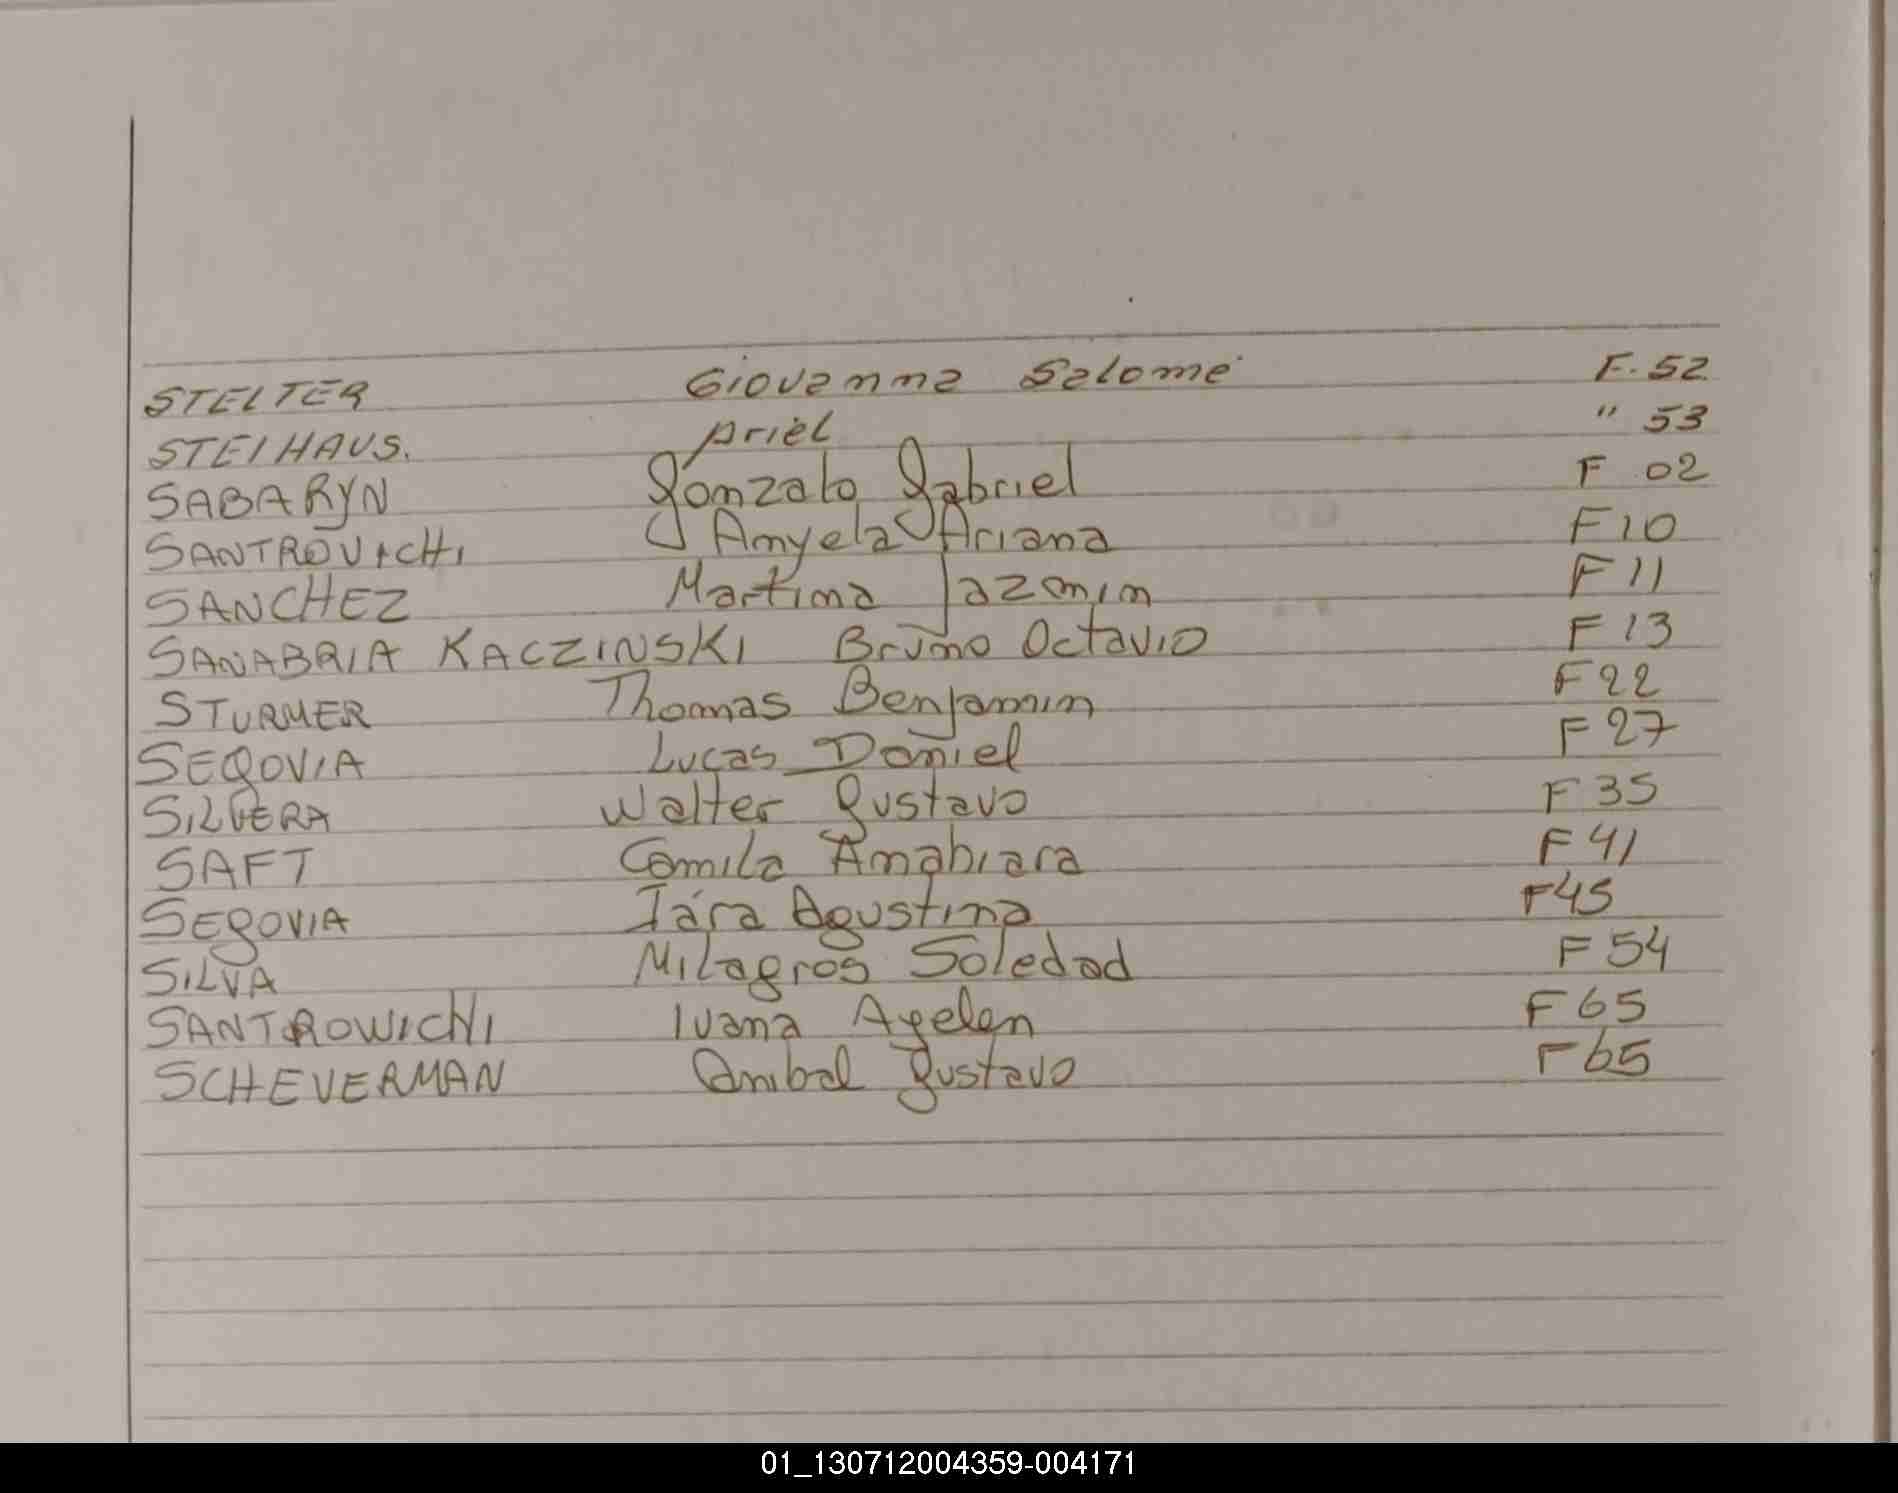 STELTER Giovanna Salome F. 52
STEIHAUS. Ariel " 53
SABARYN Gonzalo Gabriel F 02
SANTROVICHI Amyela Ariana F10
SANCHEZ Martina Jazmin F 11
SANABRIA KACZINSKI Bruno Octavio F 13
STURMER Thomas Benjamin F22
SEGOVIA Lucas Daniel F 27
SILVERA Walter Gustavo F 35
SAFT Camila Anabiara F 41
SEGOVIA Iára Agustina F45
SILVA Milagros Soledad F 54
SANTROWICHI Ivana Ayelen F 65
SCHEVERMAN Anibal Gustavo F 65
01_130712004359-004171